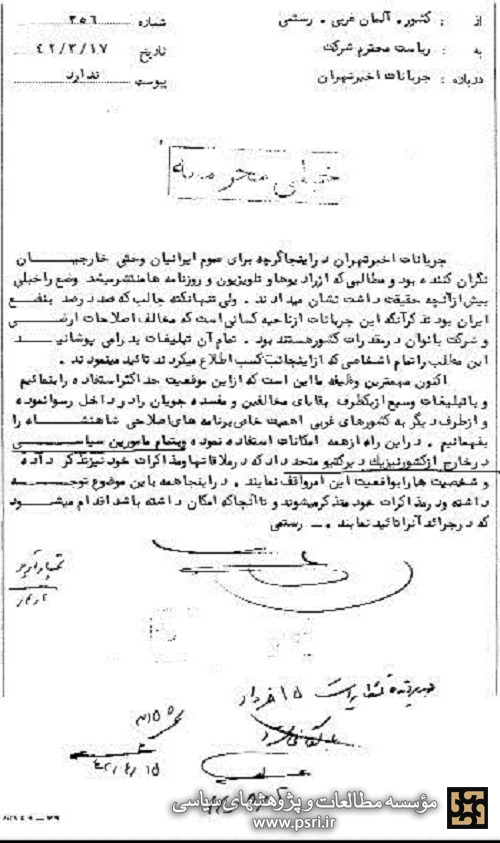 از : کشور . آلمان غربی . رستمی
شماره ۳۵۶
به : ریاست محترم شرکت
تاریخ ۴۲/۳/۱۷
درباره : جریانات اخیر تهران
پیوست ندارد
خیلی محرمانه
جریانات اخیر تهران در اینجا گرچه برای عموم ایرانیان وحتی خارجیـــــان
نگران کننده بود و مطالبی که از رادیوها و تلویزیون و روزنامه ها منتشر میشد وضع را خیلی
بیش از آنچه حقیقت داشت نشان میدادند . ولی تنها نکته جالب که صد در صد بنفع
ایران بود تذکر آنکه این جریانات از ناحیه کسانی است که مخالف اصلاحات ارضـی
و شرکت بانوان در مقدرات کشور هستند بود . تمام آن تبلیغات بد را می پوشانیــد
این مطلب را تمام اشخاصی که از اینجانب کسب اطلاع میکردند تائید مینمودند .
اکنون مهمترین وظیفه ما این است که از این موقعیت حداکثر استفاده را بنمائیم
و با تبلیغات وسیع از یکطرف بقایای مخالفین و مفسده جویان را در داخل رسوا نموده
و از طرف دیگر به کشورهای غربی اهمیت خاص برنامه های اصلاحی شاهنشــاه را
بفهمانیم . در این راه از همه امکانات استفاده نموده وبتمام مامورین سیاســـی
در خارج از کشور نیز یک دیرکتیو متحد داد که در ملاقاتها ومذاکرات خود نیز تذکر داده
و شخصیت ها را بواقعیت این امر واقف نمایند . در اینجا همه باین موضوع توجـــه
داشته و در مذاکرات خود متذکر میشوند و تا آنجا که امکان داشته باشد اقدام میشــود
که در جرائد آنرا تائید نمایند . ــ رستمی
۱۵ خرداد
۴۲/۴/۱۵
مؤسسه مطالعات و پژوهشهای سیاسی
www.psri.ir